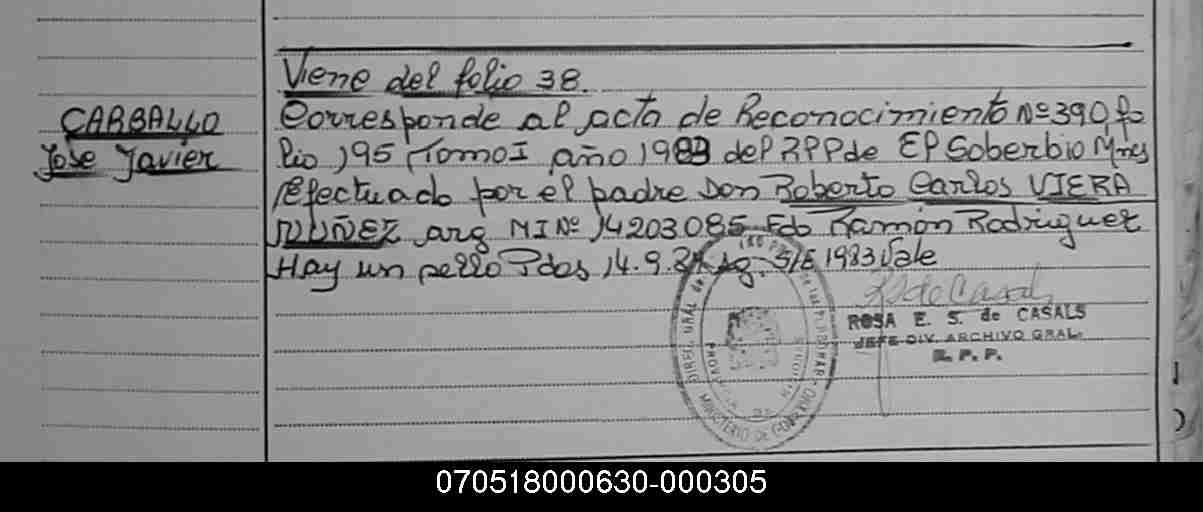 Viene del folio 38.
CARBALLO
Jose Javier
Corresponde al acta de Reconocimiento Nº 390 fo
lio 195 Tomo I año 1983 del RPP de El Soberbio Mnes
efectuado por el padre Don Roberto Carlos VIERA
NUÑEZ arg MI Nº 14203085 Fdo Ramón Rodriguez
Hay un sello Pdas 14.9.84 5/5 1983 Vale
ROSA E. S. de CASALS
JEFE DIV. ARCHIVO GRAL.
R. P. P.
MINISTERIO DE GOBIERNO
070518000630-000305